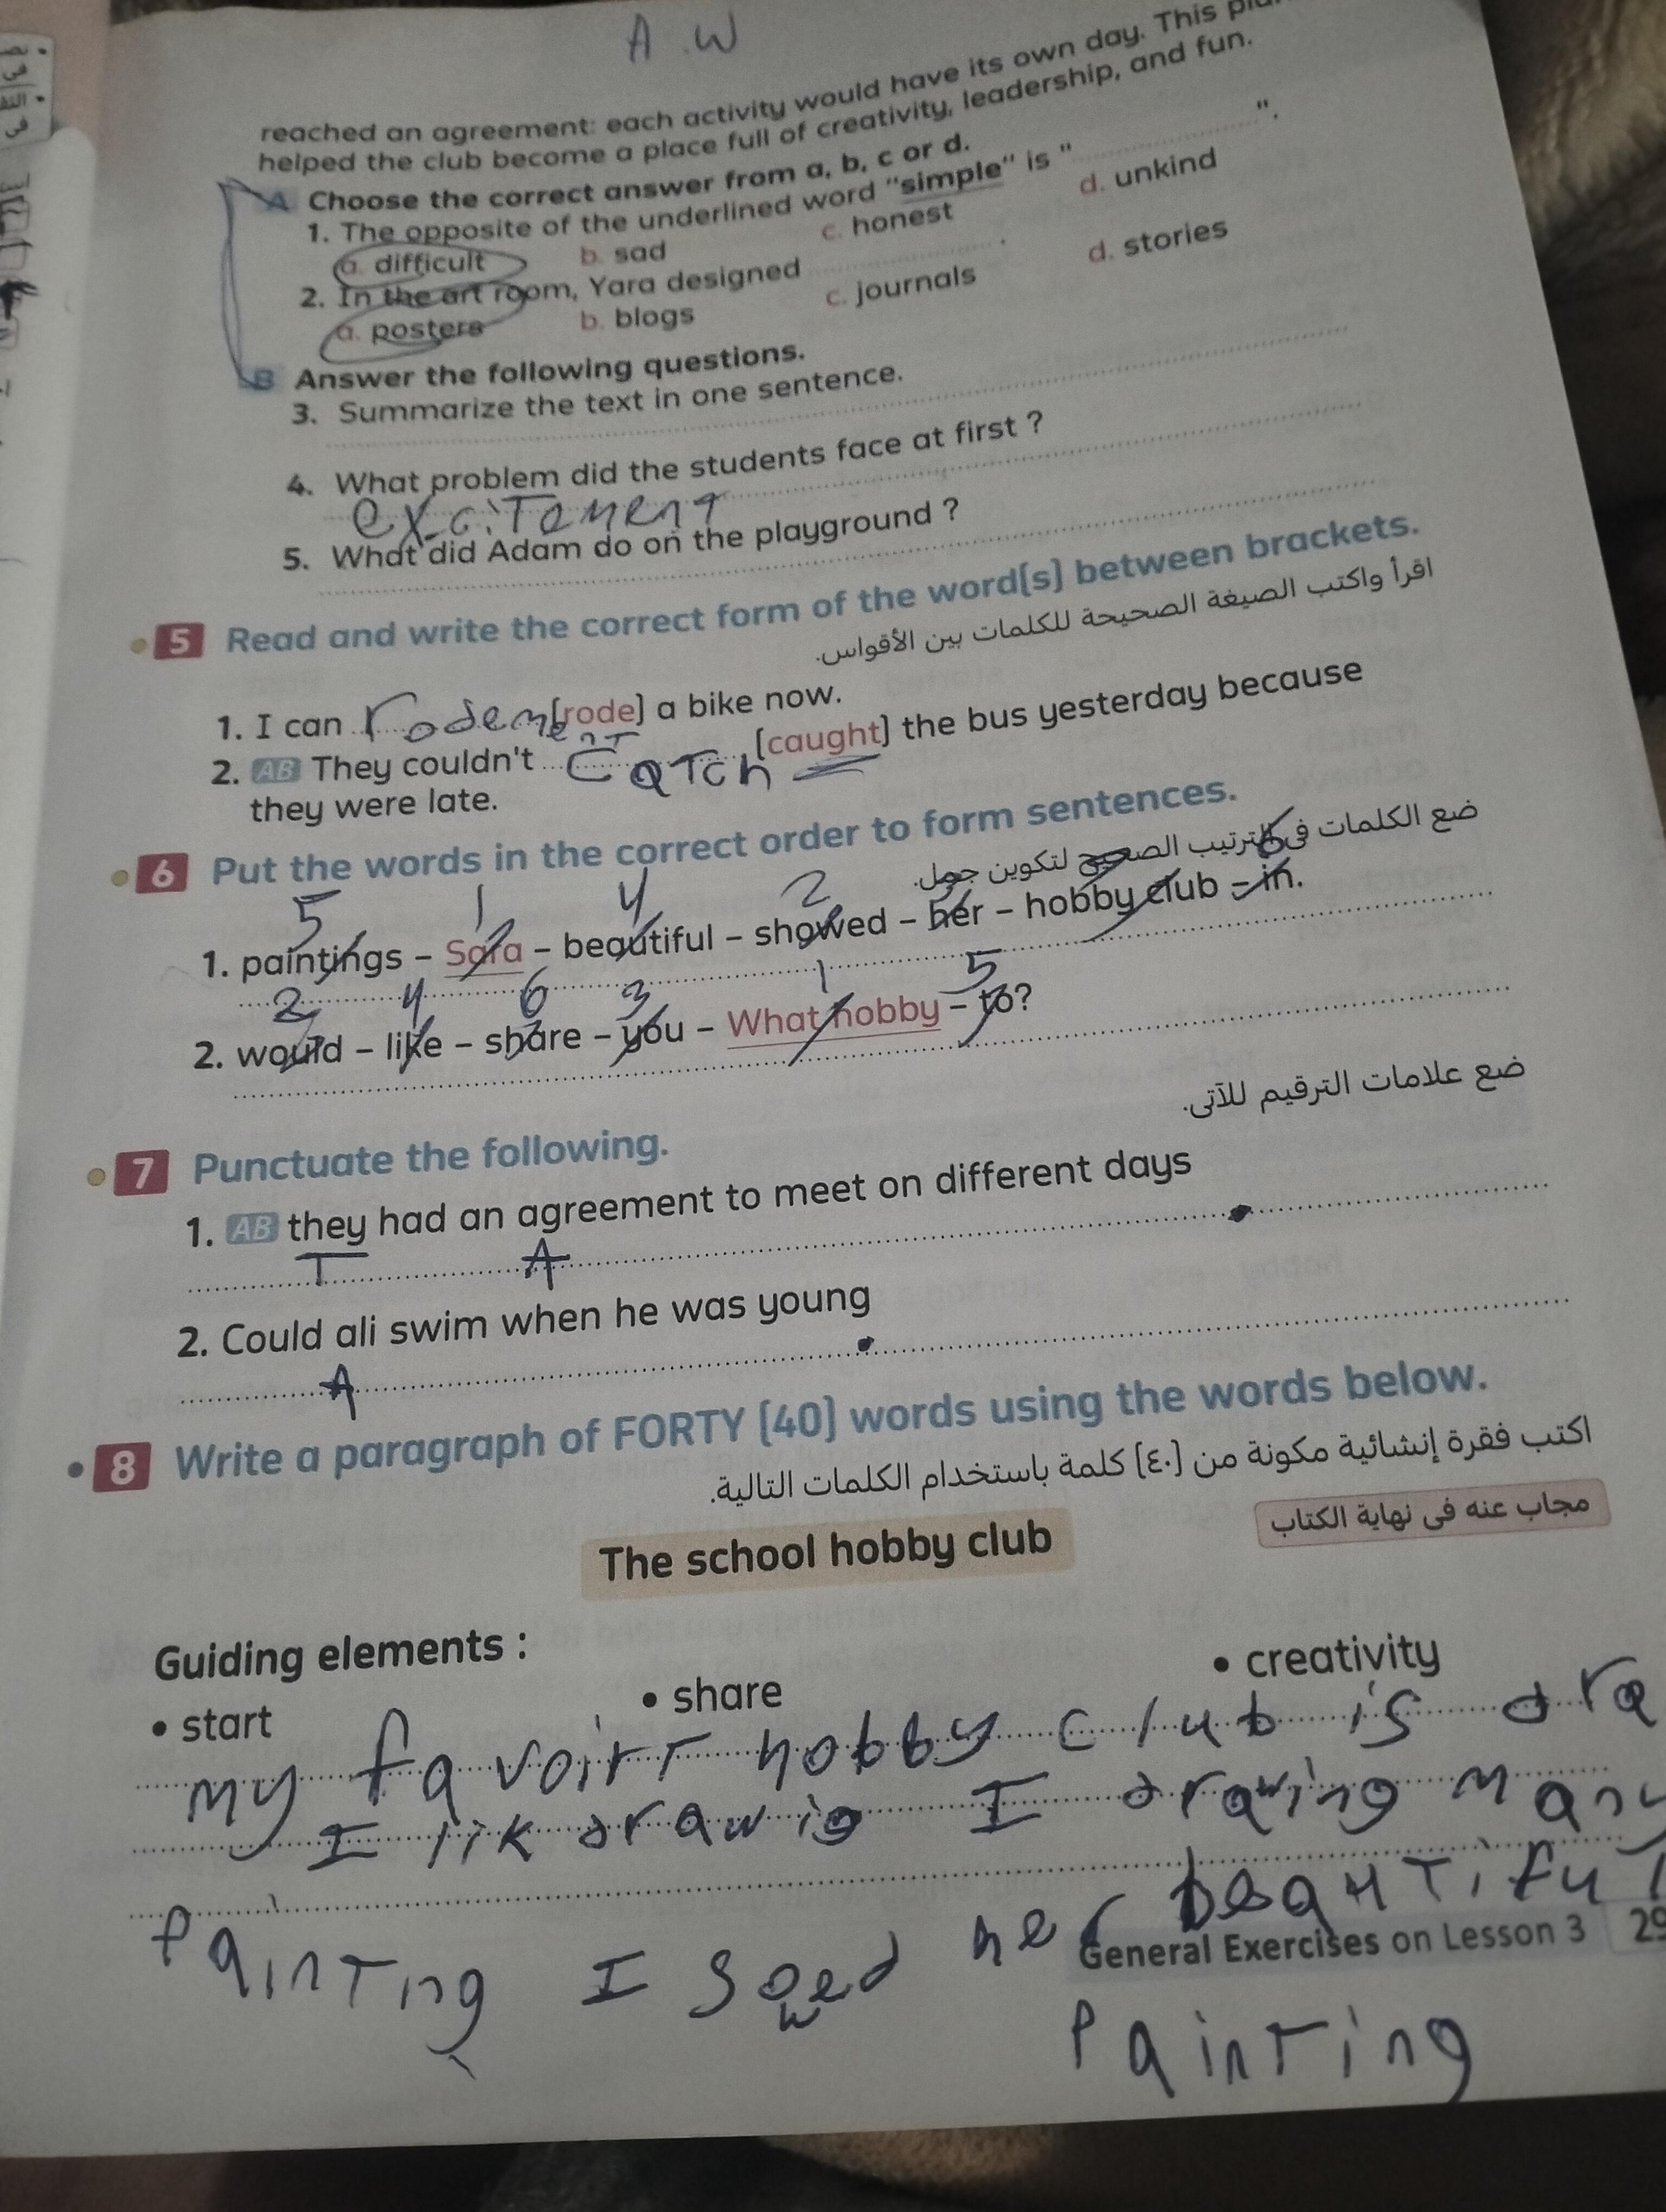 A.W
reached an agreement: each activity would have its own day. This
helped the club become a place full of creativity, leadership, and fun.
A Choose the correct answer from a, b, c or d.
1. The opposite of the underlined word "simple" is "..............".
a. difficult b. sad c. honest d. unkind
2. In the art room, Yara designed ...............
a. posters b. blogs c. journals d. stories
B Answer the following questions.
3. Summarize the text in one sentence.
4. What problem did the students face at first ?
excitement
5. What did Adam do on the playground ?
5 Read and write the correct form of the word(s) between brackets.
اقرأ واكتب الصيغة الصحيحة للكلمات بين الأقواس.
1. I can rodement [rode] a bike now.
2. AB They couldn't catch [caught] the bus yesterday because
they were late.
6 Put the words in the correct order to form sentences.
ضع الكلمات فى الترتيب الصحيح لتكوين جمل.
5 1 4 2 3 6
1. paintings – Sara – beautiful – showed – her – hobby club – in.
2 4 6 3 1 5
2. would – like – share – you – What hobby – to?
ضع علامات الترقيم للآتى.
7 Punctuate the following.
1. AB they had an agreement to meet on different days
T A .
2. Could ali swim when he was young
A .
8 Write a paragraph of FORTY (40) words using the words below.
اكتب فقرة إنشائية مكونة من (٤٠) كلمة باستخدام الكلمات التالية.
مجاب عنه فى نهاية الكتاب
The school hobby club
Guiding elements :
• start • share • creativity
my favoirt hobby club is dra
I lik drawig I drawing many
Painting I sowed her beautiful
General Exercises on Lesson 3 29
Painting